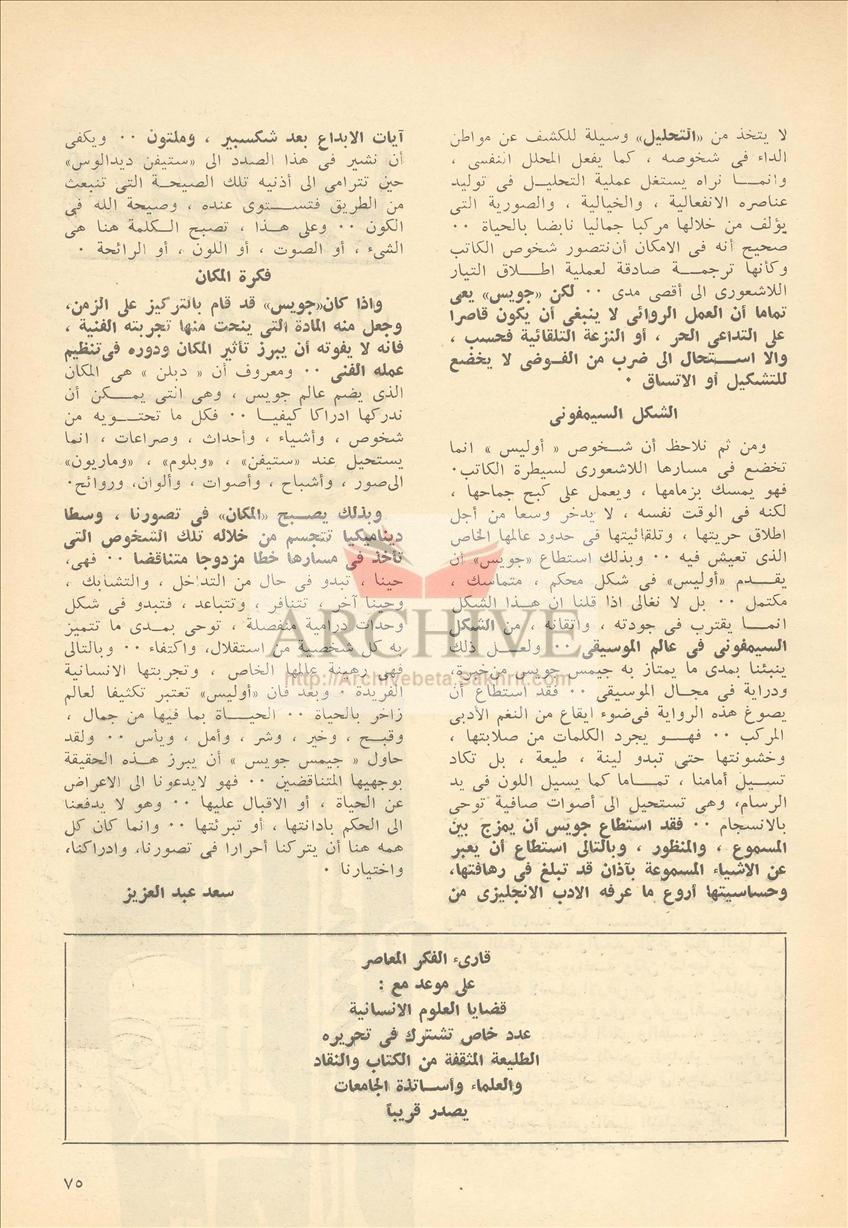 لا يتخذ من «التحليل» وسيلة للكشف عن مواطن
الداء فى شخوصه ، كما يفعل المحلل النفسى ،
وانمـا نراه يستغل عملية التحليـل فى توليد
عناصره الانفعالية ، والخيالية ، والصورية التى
يؤلف من خلالها مركبا جماليا نابضا بالحياة ٠٠
صحيح أنه فى الامكان أن نتصور شخوص الكاتب
وكأنها ترجمـة صادقة لعملية اطـلاق التيار
اللاشعورى الى أقصى مدى ٠٠ لكن «جويس» يعى
تماما أن العمل الروائى لا ينبغى أن يكون قاصرا
على التداعى الحر ، أو النزعة التلقائية فحسب ،
والا استـحال الى ضرب من الفـوضى لا يخضع
للتشكيل أو الاتساق ٠
الشكل السيمفونى
ومن ثم نلاحظ أن شـخوص « أوليس » انما
تخضع فى مسارها اللاشعورى لسيطرة الكاتب٠
فهو يمسك بزمامها ، ويعمل على كبح جماحها ،
لكنه فى الوقت نفسه ، لا يدخر وسعا من أجل
اطلاق حريتها ، وتلقائيتها فى حدود عالمها الخاص
الذى تعيش فيه ٠٠ وبذلك استطاع «جويس» أن
يقـدم «أوليس» فى شكل محكم ، متماسك ،
مكتمل ٠٠ بل لا نغالى اذا قلنا ان هـذا الشكل
انمـا يقترب فى جودته ، واتقانه ، من الشكل
السيمفونى فى عالم الموسيقى ٠٠ ولعـل ذلك
ينبئنا بمدى ما يمتاز به جيمس جويس من خبرة،
ودراية فى مجـال الموسيقى ٠٠ فقد استطاع أن
يصوغ هذه الرواية فى ضوء ايقاع من النغم الأدبى
المركب ٠٠ فهـو يجرد الكلمات من صلابتها ،
وخشونتها حتى تبدو لينة ، طيعة ، بل تكاد
تسـيل أمامنا ، تمـاما كما يسيل اللون فى يد
الرسام، وهى تستحيل الى أصوات صافية توحى
بالانسجام ٠٠ فقد استطاع جويس أن يمزج بين
المسموع ، والمنظور ، وبالتالى استطاع أن يعبر
عن الأشياء المسموعة بآذان قد تبلغ فى رهافتها،
وحساسيتها أروع ما عرفه الادب الانجليزى من
آيات الابداع بعد شكسبير ، وملتون ٠٠ ويكفى
أن نشير فى هذا الصدد الى «ستيفن ديدالوس»
حين تترامى الى أذنيه تلك الصيحـة التى تنبعث
من الطريق فتستـوى عنده ، وصيحة الله فى
الكون ٠٠ وعلى هـذا ، تصبح الـكلمة هنا هى
الشىء ، أو الصوت ، أو اللون ، أو الرائحة ٠
فكرة المكان
واذا كان«جويس» قد قام بالتركيز على الزمن،
وجعل منه المادة التى ينحت منها تجربته الفنية ،
فانه لا يفوته أن يبرز تأثير المكان ودوره فى تنظيم
عمله الفنى ٠٠ ومعروف أن « دبلن » هى المكان
الذى يضم عالم جويس ، وهى التى يمـكن أن
ندركها ادراكا كيفيـا ٠٠ فكل ما تحتـويه من
شخوص ، وأشياء ، وأحداث ، وصراعات ، انما
يستحيل عند «ستيفن» ، «وبلوم» ، «وماريون»
الى صور ، وأشباح ، وأصوات ، وألوان، وروائح٠
وبذلك يصـبح «المكان» فى تصورنا ، وسطا
ديناميكيا تتجسم من خلاله تلك الشخوص التى
تأخذ فى مسارها خطا مزدوجا متناقضا ٠٠ فهى،
حينا ، تبدو فى حال من التداخل ، والتشابك ،
وحينا آخر ، تتنافر ، وتتباعد ، فتبدو فى شكل
وحدات درامية منفصلة ، توحى بمـدى ما تتميز
به كل شخصية من استقلال، واكتفاء ٠٠ وبالتالى
فهى رهينة عالمها الخاص ، وتجربتها الانسانية
الفريدة ٠ وبعد فان «أوليس» تعتبر تكثيفا لعالم
زاخر بالحياة ٠٠ الحيـاة بما فيها من جمال ،
وقبـح ، وخير ، وشر ، وأمل ، ويأس ٠٠ ولقد
حاول « جيمس جويس » أن يبرز هـذه الحقيقة
بوجهيها المتناقضين ٠٠ فهو لايدعونا الى الاعراض
عن الحياة ، أو الاقبال عليها ٠٠ وهو لا يدفعنا
الى الحكم بادانتها ، أو تبرئتها ٠٠ وانما كان كل
همه هنا أن يتركنا أحرارا فى تصورنا، وادراكنا،
واختيارنا ٠
سعد عبد العزيز
ARCHIVE
http://Archivebeta.Sakhrit.com
قارىء الفكر المعاصر
على موعد مع :
قضايا العلوم الانسانية
عدد خاص تشترك فى تحريره
الطليعة المثقفة من الكتاب والنقاد
والعلماء وأسـاتذة الجامعات
يصدر قريباً
٧٥